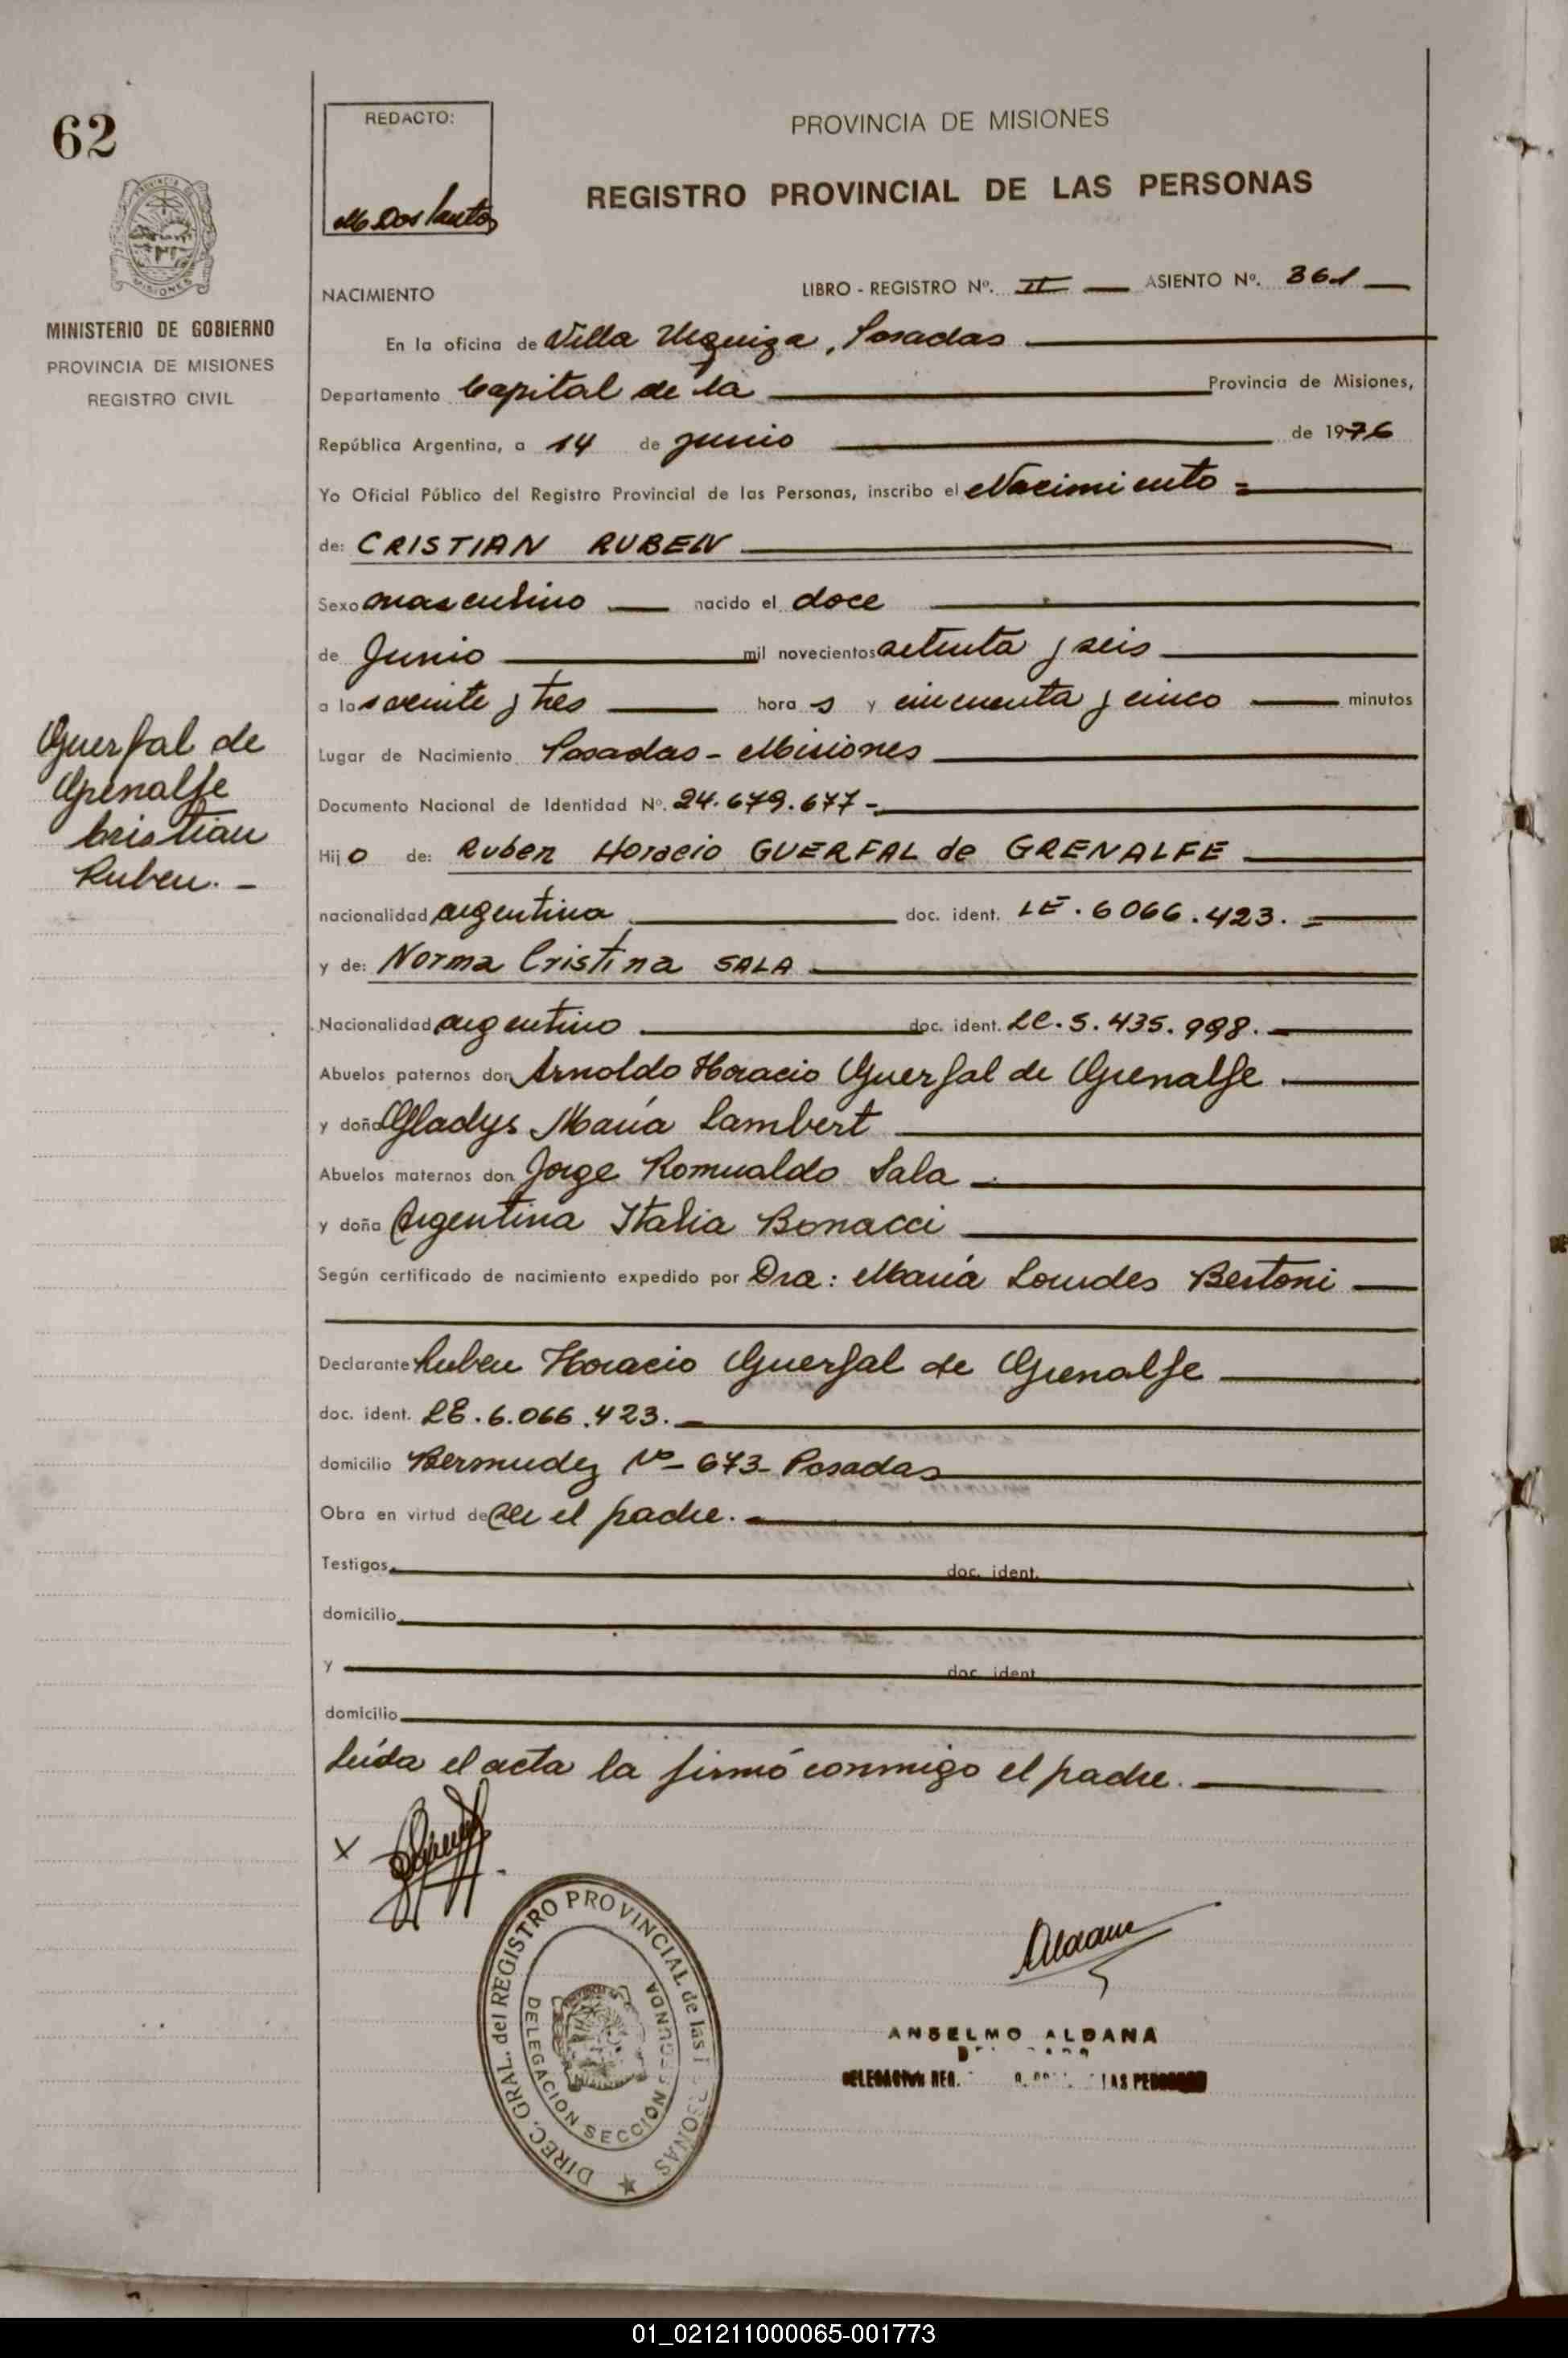 62
REDACTO:
M Dos Santos
PROVINCIA DE MISIONES
REGISTRO PROVINCIAL DE LAS PERSONAS
MINISTERIO DE GOBIERNO
PROVINCIA DE MISIONES
REGISTRO CIVIL
NACIMIENTO
LIBRO - REGISTRO Nº. II ASIENTO Nº. 361
En la oficina de Villa Urquiza, Posadas
Departamento Capital de la Provincia de Misiones,
República Argentina, a 14 de junio de 1976
Yo Oficial Público del Registro Provincial de las Personas, inscribo el Nacimiento =
de: CRISTIAN RUBEN
Sexo masculino nacido el doce
de Junio mil novecientos setenta y seis
a las veinte y tres hora s y cincuenta y cinco minutos
Lugar de Nacimiento Posadas - Misiones
Documento Nacional de Identidad Nº. 24.679.677-
Guerfal de
Grenalfe
Cristian
Ruben. -
Hijo de: Ruben Horacio GUERFAL de GRENALFE
nacionalidad argentina doc. ident. LE. 6066.423. =
y de: Norma Cristina SALA
Nacionalidad argentino doc. ident. LC. 5.435.998.
Abuelos paternos don Arnoldo Horacio Guerfal de Grenalfe
y doña Gladys María Lambert
Abuelos maternos don Jorge Romualdo Sala
y doña Argentina Italia Bonacci
Según certificado de nacimiento expedido por Dra: María Lourdes Bertoni
Declarante Ruben Horacio Guerfal de Grenalfe
doc. ident. LE. 6.066.423.
domicilio Bermudez Nº 673- Posadas
Obra en virtud de ser el padre.
Testigos doc. ident.
domicilio
y doc. ident.
domicilio
Leída el acta la firmó conmigo el padre.
X
DIREC. GRAL. del REGISTRO PROVINCIAL de las PERSONAS
DELEGACION SECCIÓN SEGUNDA
Aldana
ANSELMO ALDANA
01_021211000065-001773